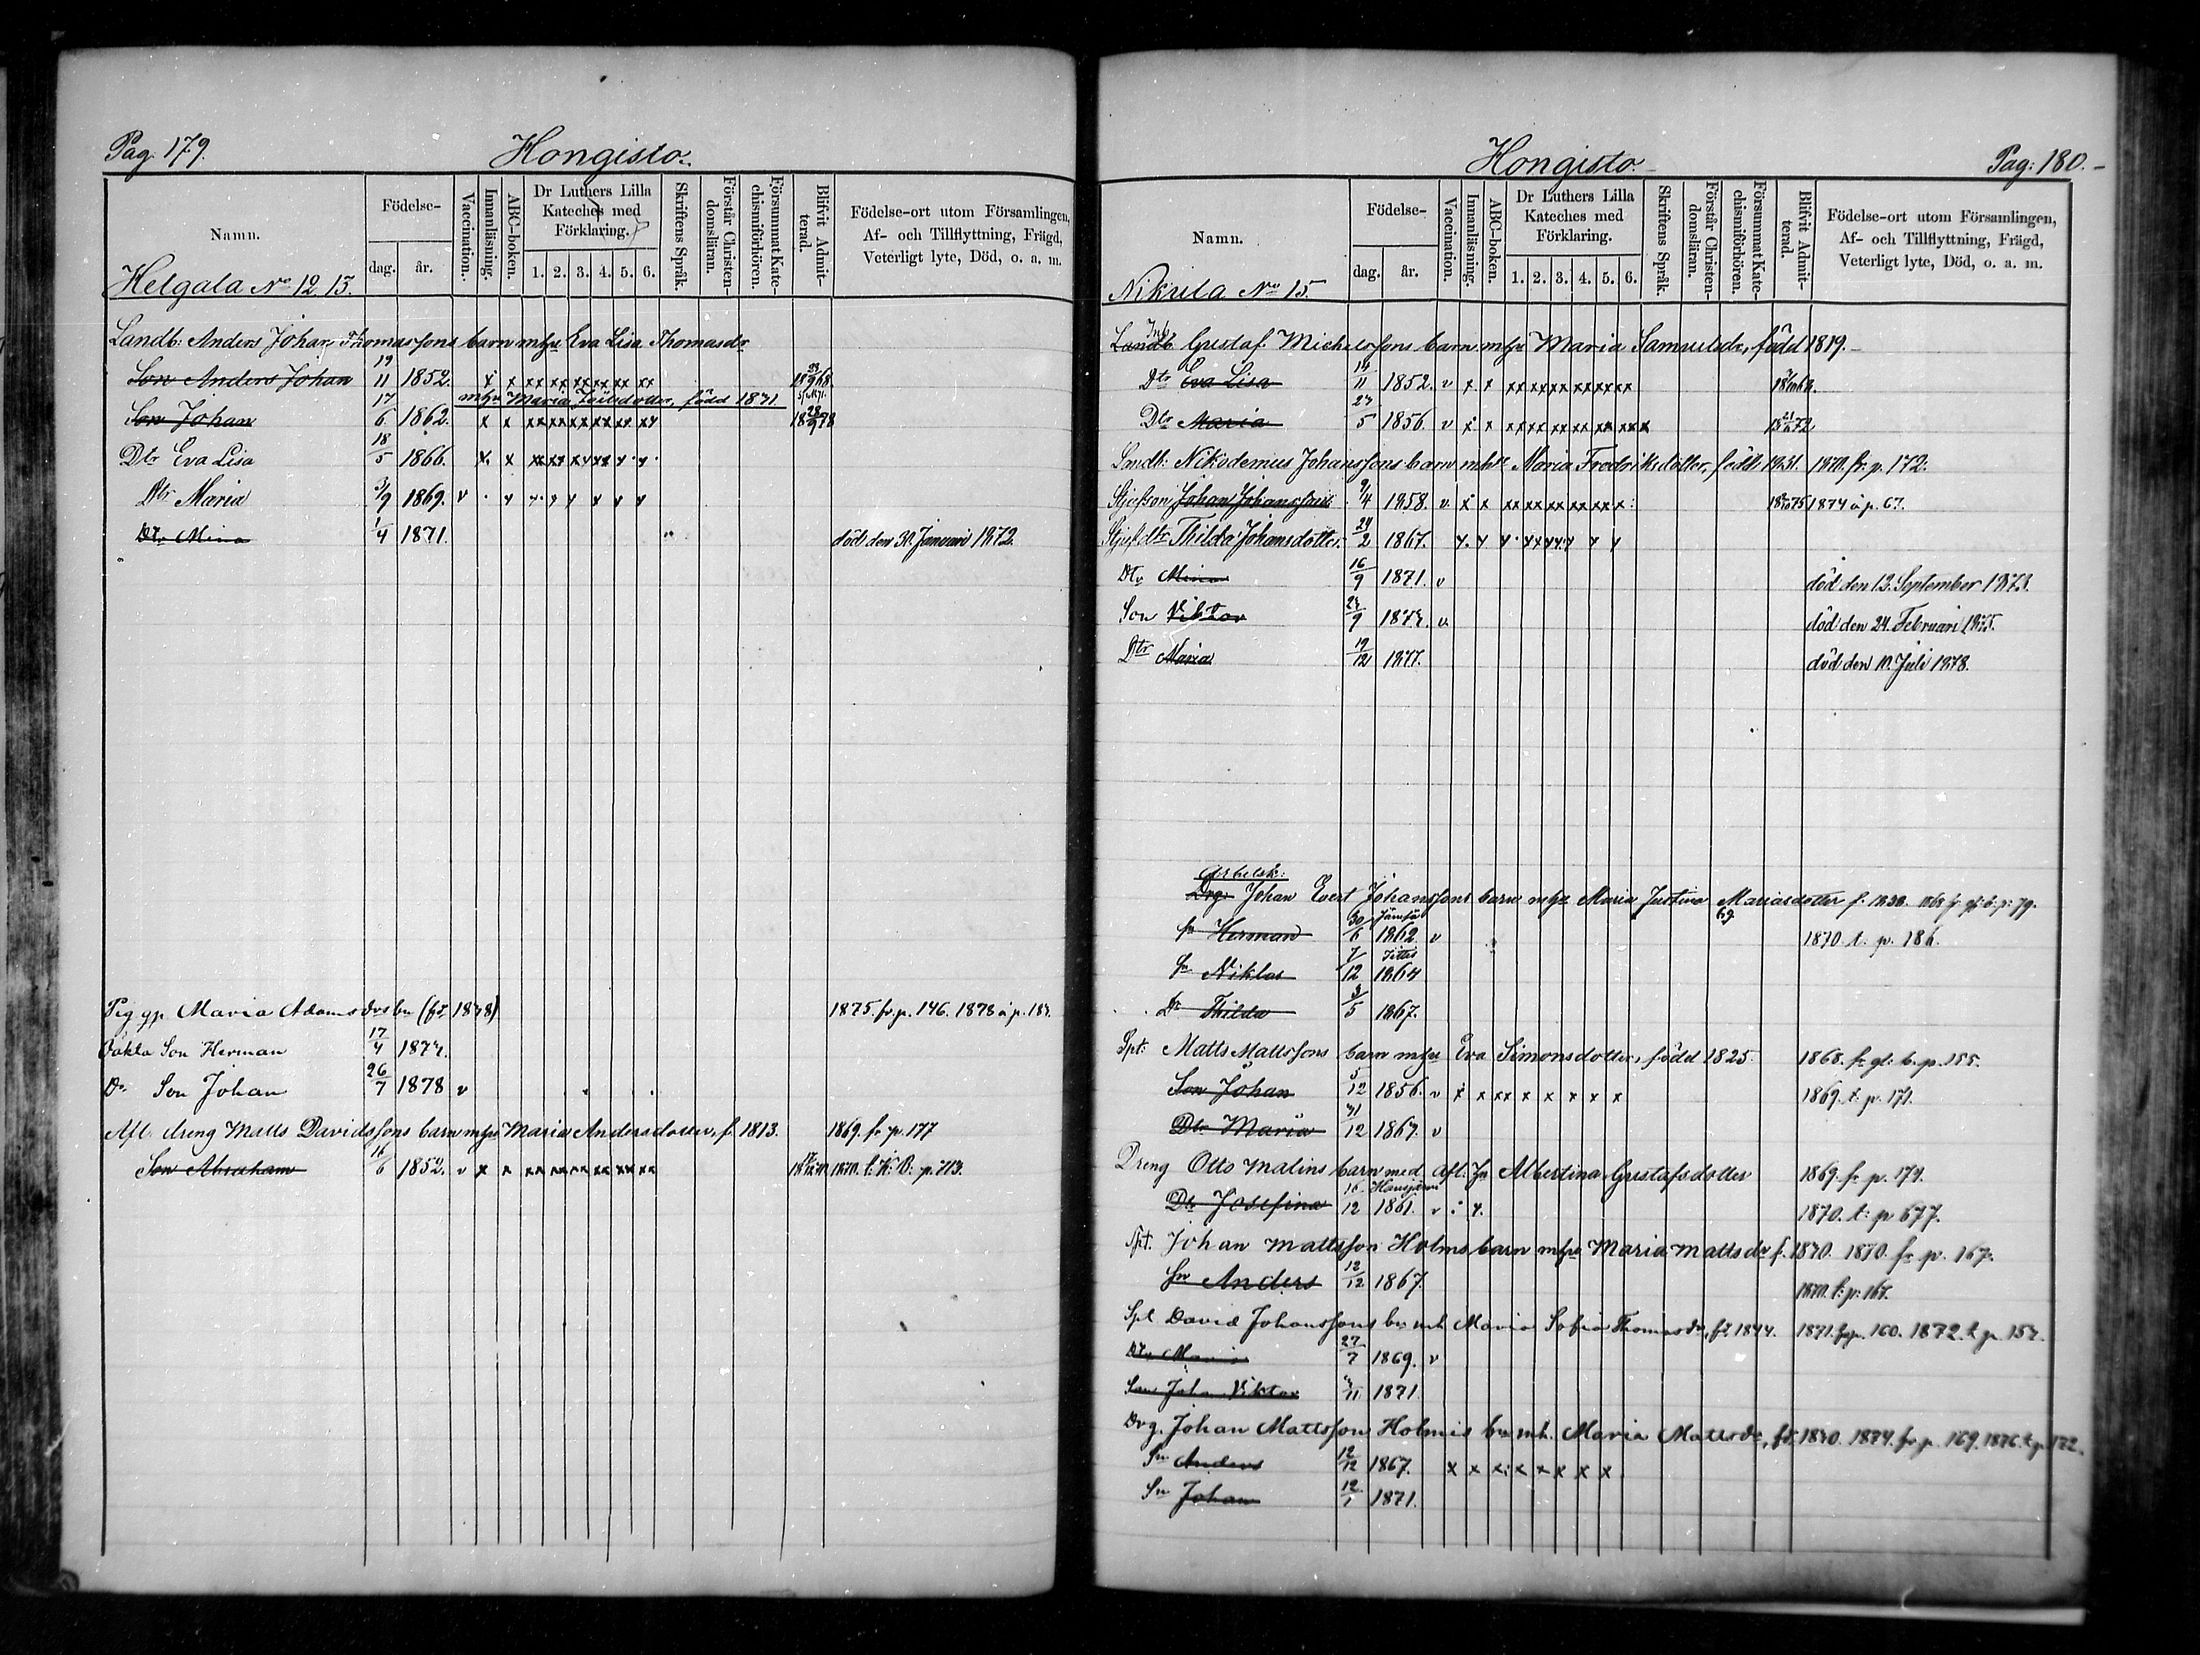 Pag. 179.
Hongisto.
Namn.
Födelse-
dag.
år.
Vaccination.
Innanläsning.
ABC-boken.
Dr Luthers Lilla Kateches med Förklaring.
1. 2. 3. 4. 5. 6.
Skriftens Språk.
Förstår Christendomsläran.
Försummat Katechismiförhören.
Blifvit Admitterad.
Födelse-ort utom Församlingen, Af- och Tillflyttning, Frägd, Veterligt lyte, Död, o. a. m.
Helgala No 12. 13.
Landb: Anders Johan Thomassons barn mhu Eva Lisa Thomasdr
Son Anders Johan 19/11 1852. x x xx xx xx xx xx xx
mhu Maria , född 1871
Son Johan 17/6 1862. x x xx xx xx xx xx xy 18 28/9 78
Dtr Eva Lisa 18/5 1866. x. x
Dtr Maria 3/9 1869. v
Dtr Mina 1/4 1871. död den 30. Januari 1872.
Pig gp Maria Adamsdrs bn (fd 1848) 1875. fr. p. 146. 1878 å p.
Oäkta Son Herman 17/4
Do Son Johan 26/7 1878 v
Afl. dreng Matts Davidssons barn mhu Maria Andersdotter, f. 1813. 1869. fr. p. 177
Son Abraham 16/6 1852. v x x xx xx xx xx xx xx p. 713.
Hongisto.
Pag: 180.
Namn.
Födelse-
dag.
år.
Vaccination.
Innanläsning.
ABC-boken.
Dr Luthers Lilla Kateches med Förklaring.
1. 2. 3. 4. 5. 6.
Skriftens Språk.
Förstår Christendomsläran.
Försummat Katechismiförhören.
Blifvit Admitterad.
Födelse-ort utom Församlingen, Af- och Tillflyttning, Frägd, Veterligt lyte, Död, o. a. m.
Nikula No 15.
Inh
Landb Gustaf Michelssons barn mhu Maria Samuelsdr, född 1819.
Dtr Eva Lisa 14/11 1852. v x x xx xx xx xx xx xx
Dtr Maria 5 1856. v x x
Landb: Nikodemus Johanssons barn mhu Maria Fredriksdotter, född 1831. 1870. fr. p. 172.
Stjufson Johan Johansson 9/4 1858. v x x 1874 å p. 67.
Stjufdtr Thilda Johansdotter 24/2 1867.
Dtr Mina 16/9 1871. v död den 13. September 1873.
Son Viktor 9 död den 24. Februari 1875.
Dtr Maria 19/12 1877. död den 10. Juli 1878.
Arbetsk:
Drg Johan Evert Johanssons barn mhu Maria Justina Mariasdotter p. 79.
Sn Herman 30/6 1862 v 1870. t. p. 186.
Sn Niklas 7/12 1864
Dr Thilda 3/5 1867.
Spt: Matts Mattssons barn mhu Eva Simonsdotter, född 1825. 1868. fr. gl. b. p. 155.
Son Johan 5/12 1856. v x x xx x x x x x 1869. t. p. 171.
Dtr Maria 31/12 1867. v
Dreng Otto Malins barn med afl. hu Albertina Gustafsdotter 1869. fr. p. 171.
Dr Josefina 16/12 1861. v 1870. t: p 677.
Spt. Johan Mattsson Holms barn mhu Maria Mattsdr f. 1840. 1870. fr. p. 167.
Sn Anders 12/12 1867. 1870. t: p: 167.
Spt David Johanssons bn mh Maria Sofia Thomasdr, fd 1844. 1871. fr. p. 160. 1872. t. p. 154.
Dtr Maria 27/7 1869. v
Son Joh. Viktor 11 1871.
Drg. Johan Mattsson Holmis bn mh. Maria Mattsdr, fd. 1840. 1874. fr. p. 169. 1876. t. p. 172.
Sn Anders 12/12 1867. x x x: x x x x x
Sn Johan 12/1 1871.